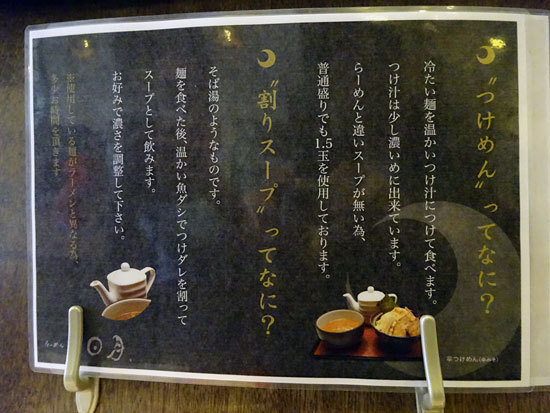 “つけめん”ってなに？
冷たい麺を温かいつけ汁につけて食べます。
つけ汁は少し濃いめに出来ています。
らーめんと違いスープが無い為、
普通盛りでも1.5玉を使用しております。
“割りスープ”ってなに？
そば湯のようなものです。
麺を食べた後、温かい魚ダシでつけダレを割って
スープとして飲みます。
お好みで濃さを調整して下さい。
※使用している麺がラーメンと異なる為、
多少お時間を頂きます
らーめん 日月